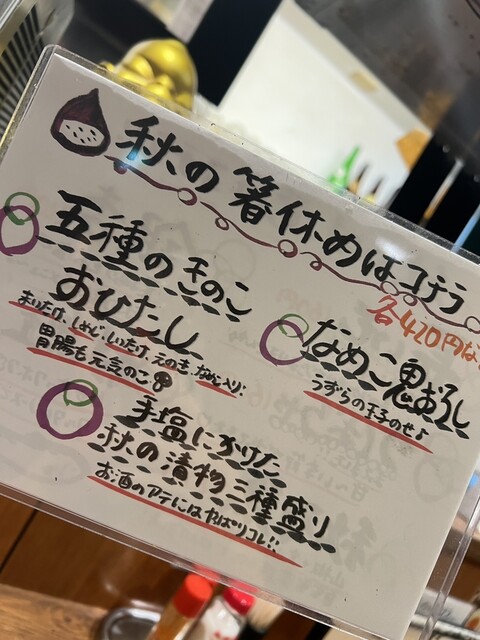 秋の箸休めはコチラ
各420円な
五種のきのこ
おひたし
まいたけ、しめじ、しいたけ、えのき、なめこ入り!
胃腸も元気のこ
なめこ鬼おろし
うずらの玉子のせ♪
手塩にかけた
秋の漬物三種盛り
お酒のアテにはやっぱりコレ!!